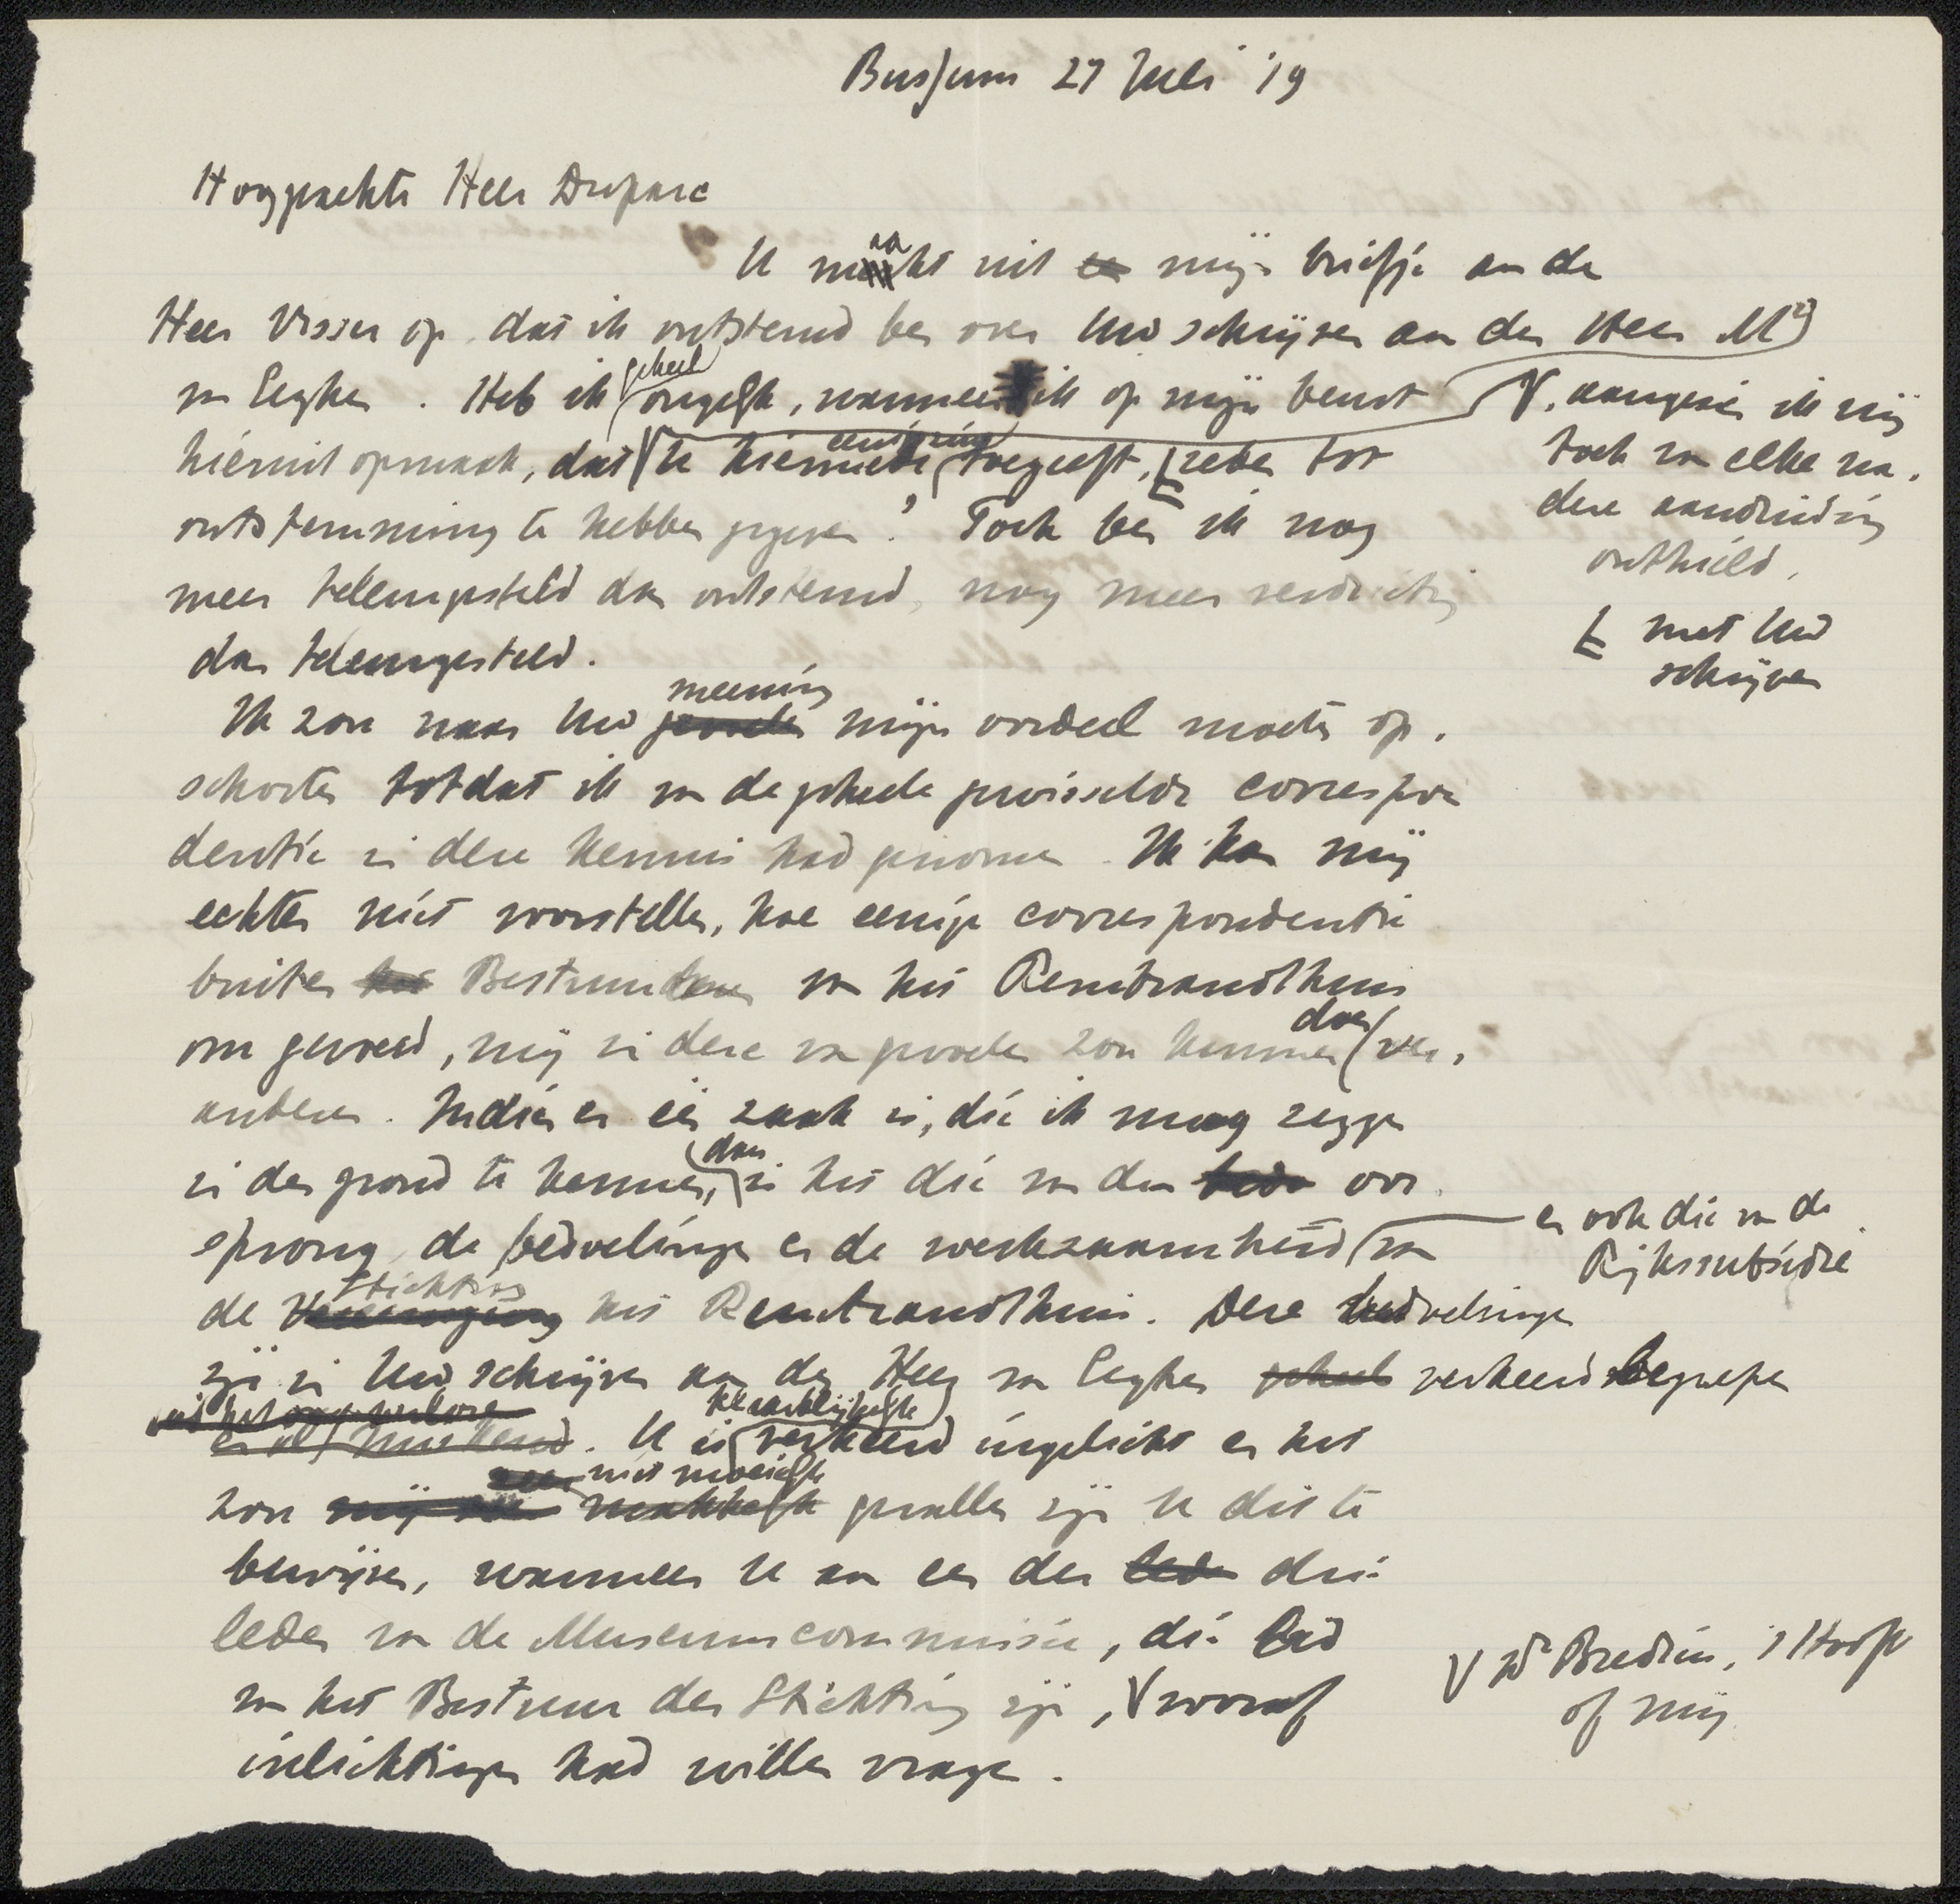 Bussum 27 Juli '19
Hooggeachte Heer Duparc
U maakt uit mijn briefje aan de
Heer Visser op, dat ik ontstemd ben over Uw schrijven aan den Heer Mr
van Eeghen. Heb ik geheel ongelijk, wanneer ik op mijn beurt
hieruit opmaak, dat U hiermede eenigszins toegeeft, reden tot
V, aangezien ik mij
toch van elke na-
dere aanduiding
onthield,
ontstemming te hebben gegeven? Toch ben ik nog
meer teleurgesteld dan ontstemd, nog meer verdrietig
dan teleurgesteld.
met Uw
schrijven
Ik zou naar Uw meening mijn oordeel moeten op-
schorten totdat ik van de geheele gewisselde correspon
dentie in deze kennis had genomen. Ik kan mij
echter niet voorstellen, hoe eenige correspondentie
buiten het Bestuur van het Rembrandthuis
om gevoerd, mij in deze van gevoelen zou kunnen doen ver-
anderen. Indien er één zaak is, die ik mag zeggen
in den grond te kennen, dan is het die van den oor-
sprong, de bedoelingen en de werkzaamheid van
en ook die van de
Rijkssubsidie
de Vereeniging Stichting het Rembrandthuis. Deze bedoelingen
zijn in Uw schrijven aan den Heer van Eeghen geheel verkeerd begrepen
U is klaarblijkelijk verkeerd ingelicht en het
zou niet moeielijk makkelijk gevallen zijn U dit te
bewijzen, wanneer U aan een der leden drie
leden van de Museumcommissie, die lid
van het Bestuur der Stichting zijn, V vooraf
V Dr Bredius, 't Hooft
of mij
inlichtingen had willen vragen.